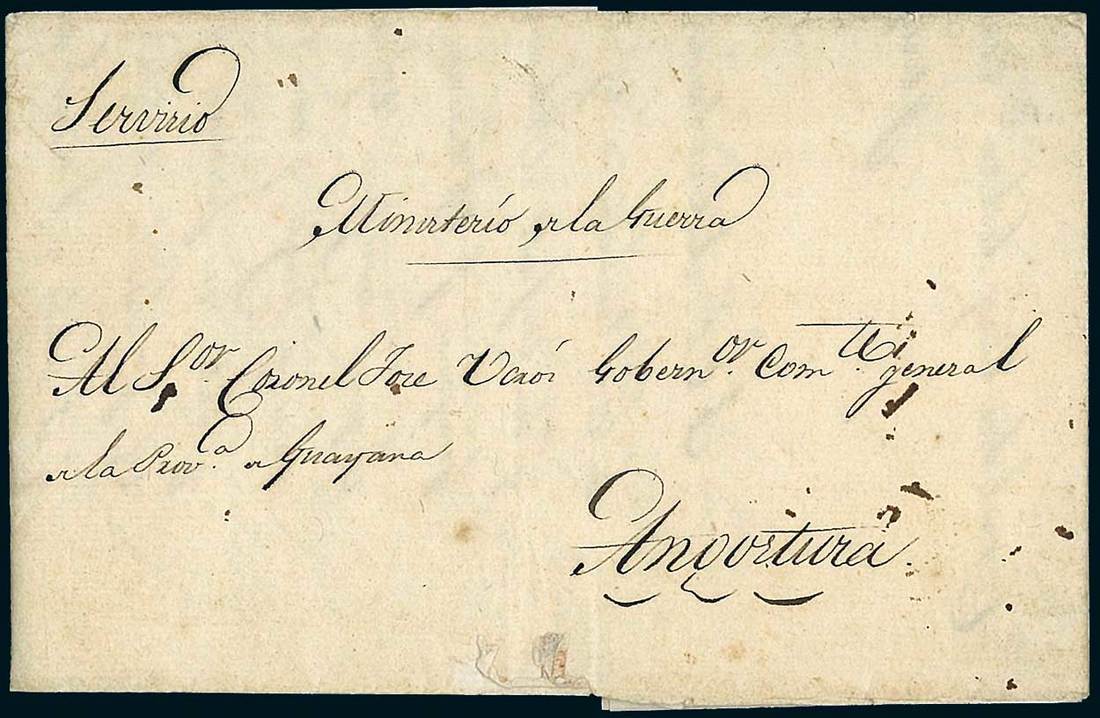 Servicio
Ministerio de la Guerra
Al Sor. Coronel Jose Ucrós Gobernor. Comte. general
de la Prova. de Guayana
Angostura.